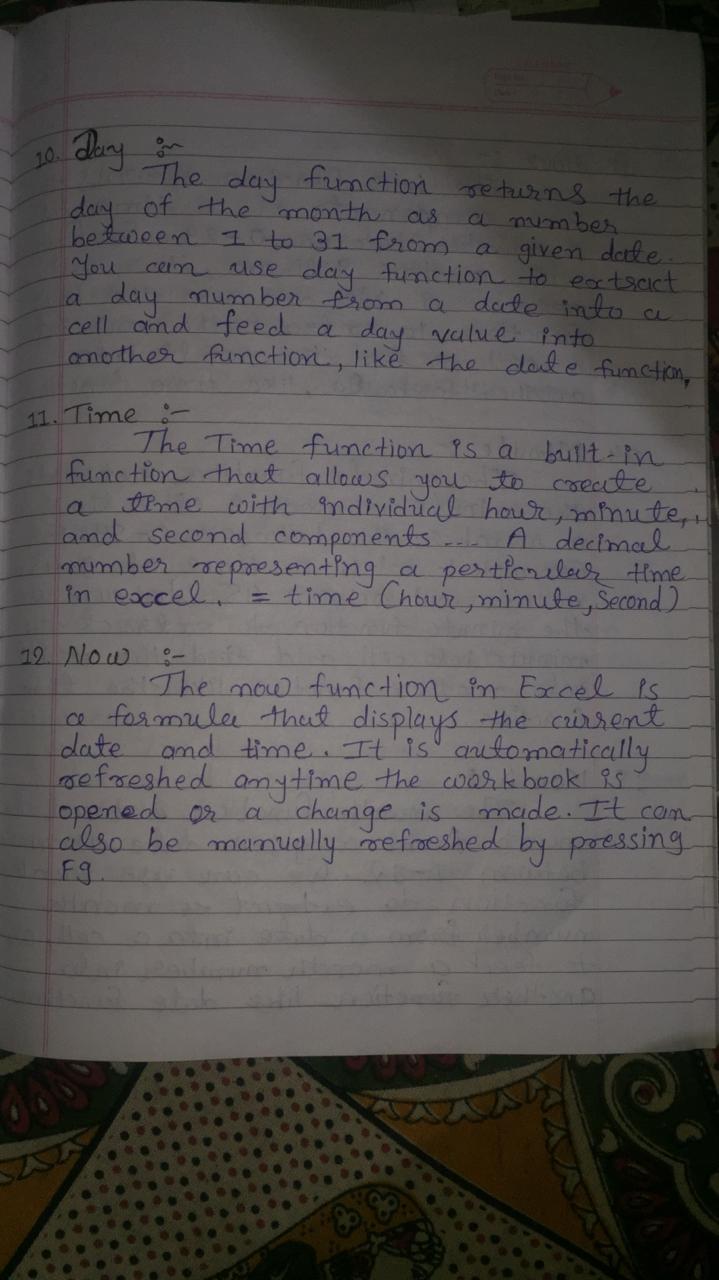 10. Day :-
The day function returns the
day of the month as a number
between 1 to 31 from a given date.
You can use day function to extract
a day number from a date into a
cell and feed a day value into
another function, like the date function,
11. Time :-
The Time function is a built-in
function that allows you to create
a time with individual hour, minute,
and second components .... A decimal
number representing a perticular time
in excel. = time (hour, minute, Second)
12. Now :-
The now function in Excel is
a formula that displays the current
date and time. It is automatically
refreshed anytime the workbook is
opened or a change is made. It can
also be manually refreshed by pressing
F9.